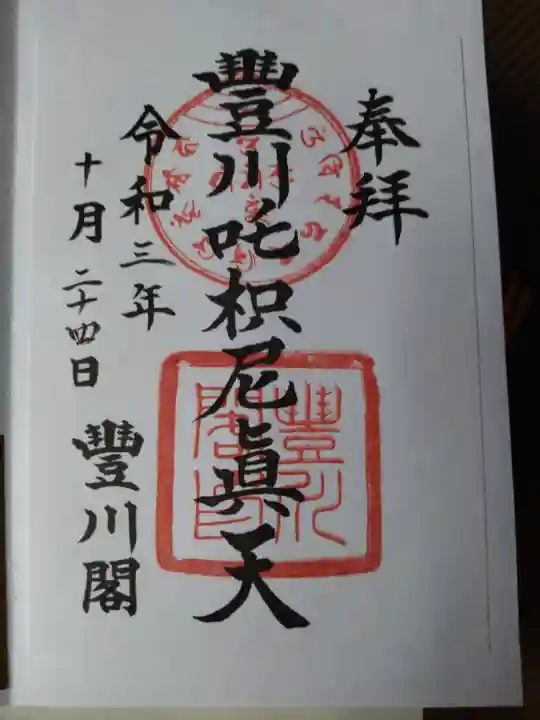 奉拝
豐川吒枳尼眞天
令和三年
十月二十四日
豐川閣
豐川
閣印